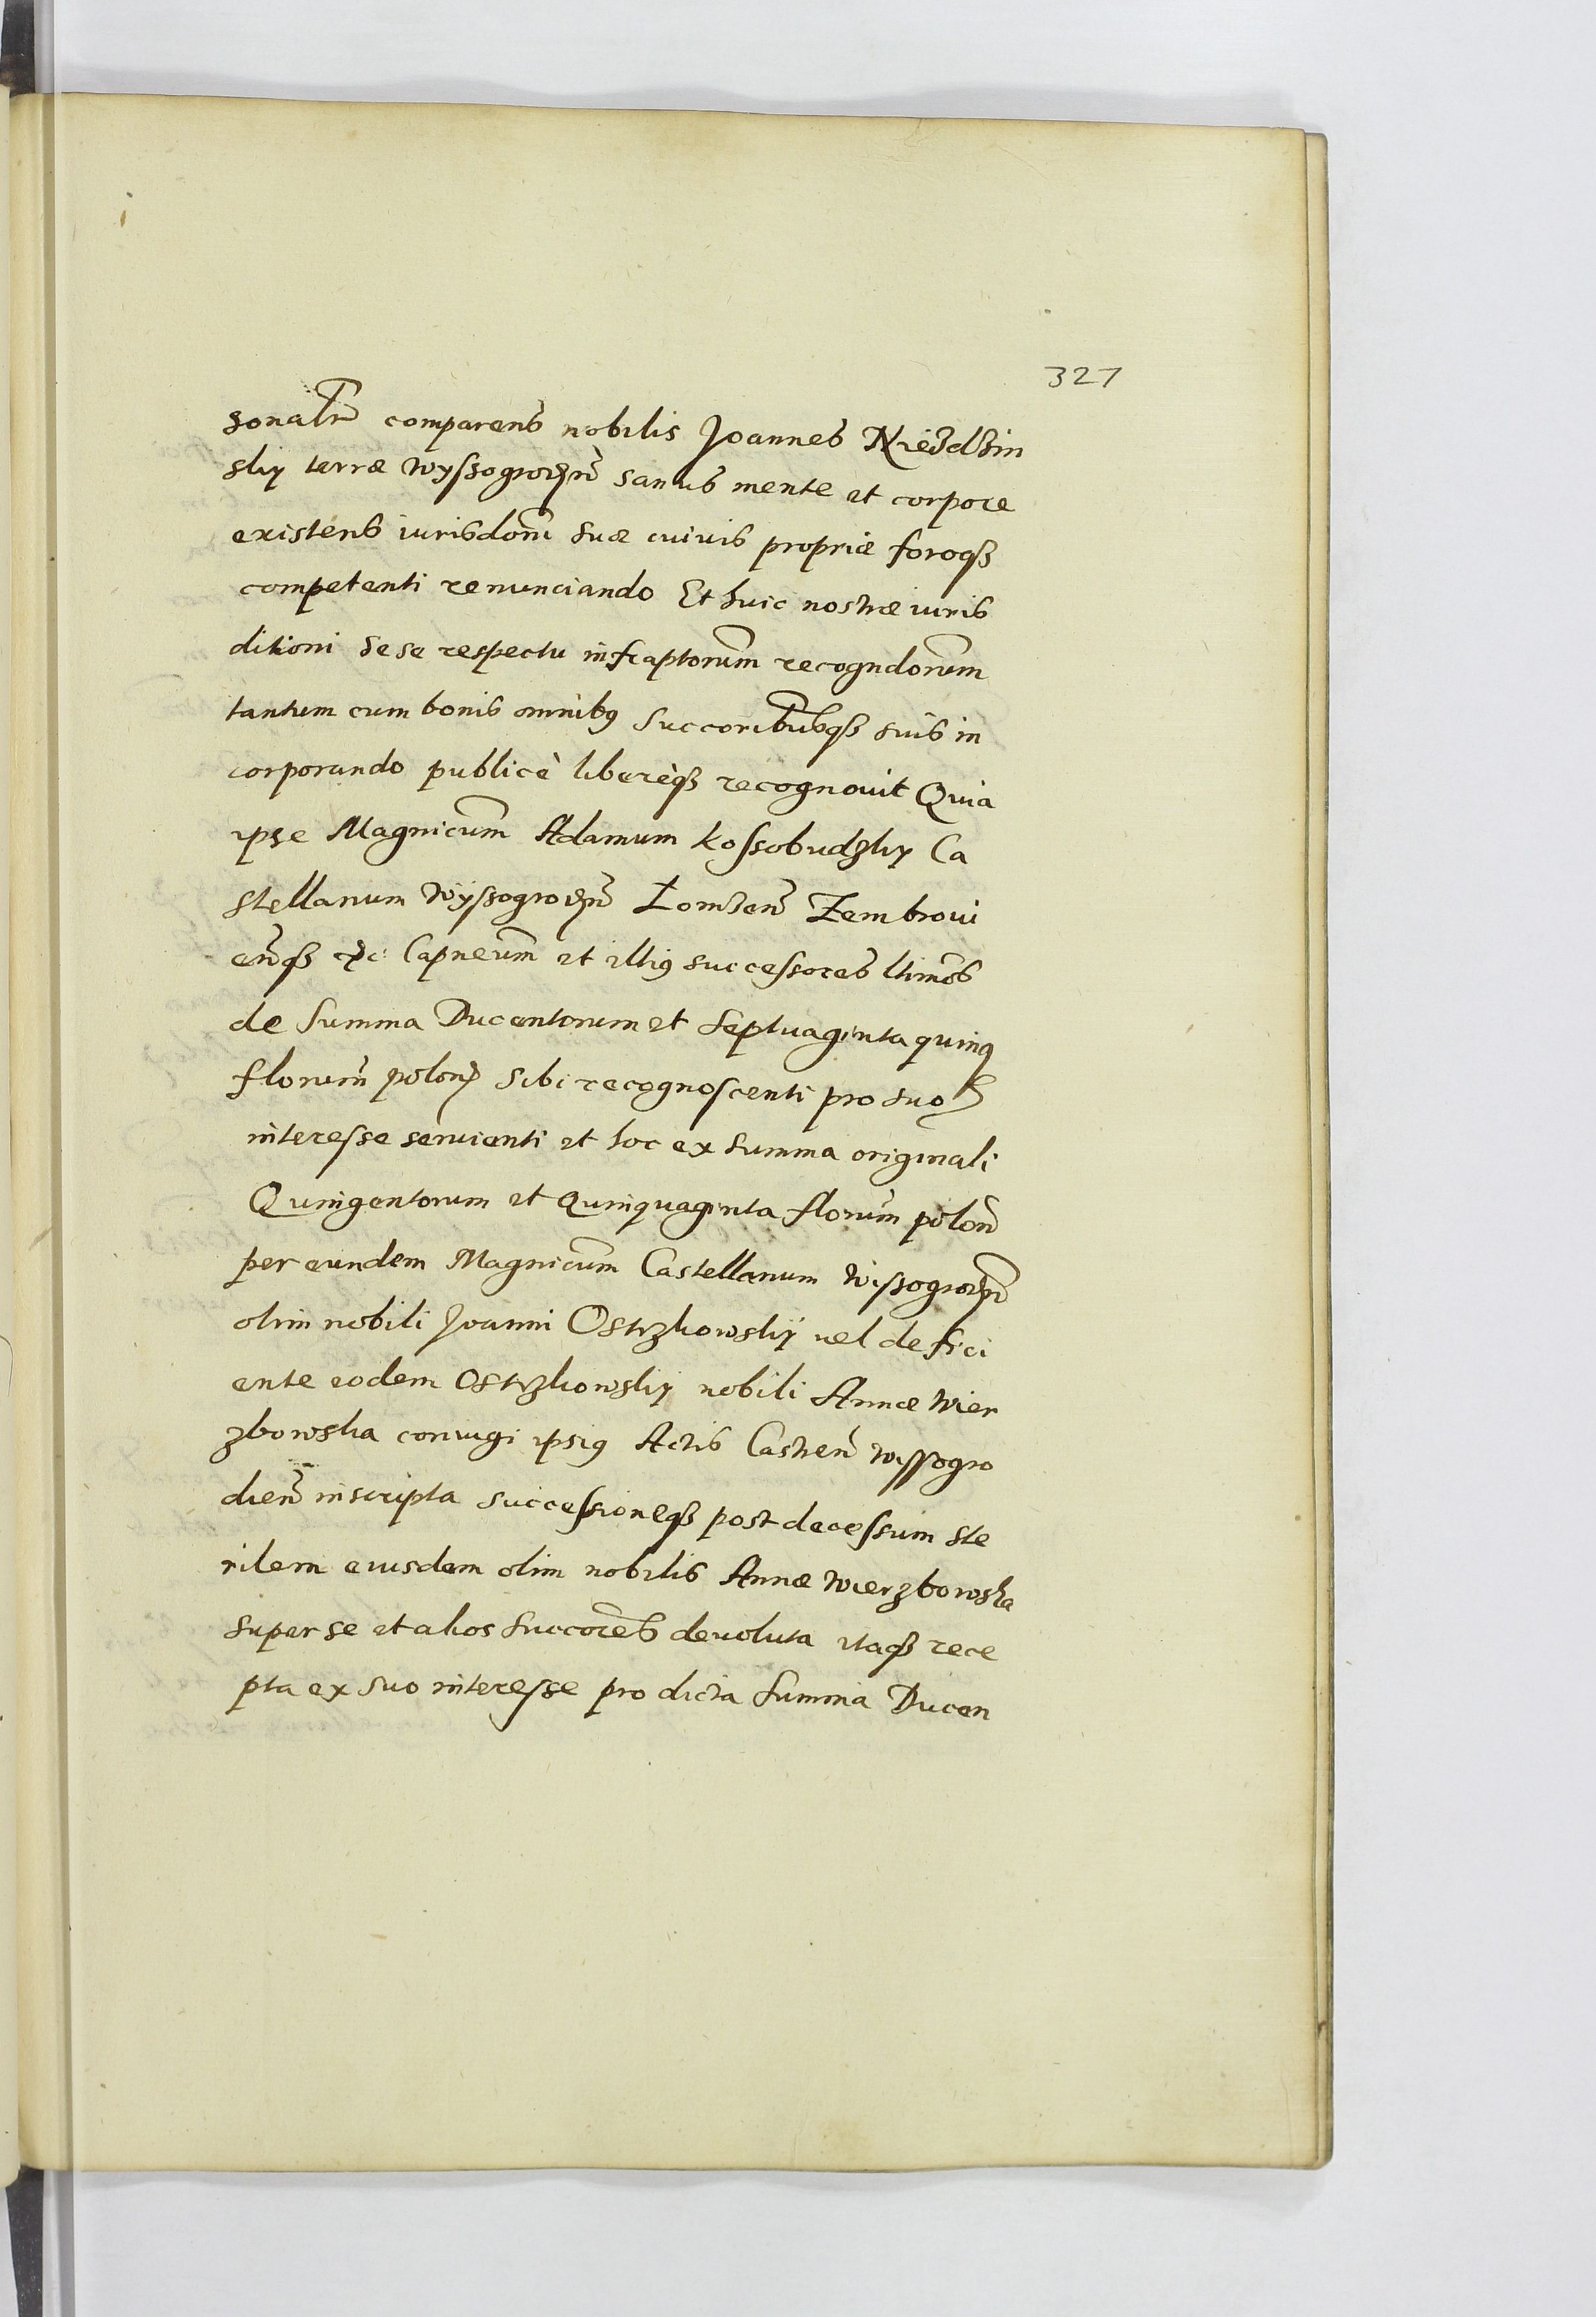 327
sonalr comparens nobilis Joannes Niedzdzin
sky terræ Wyssogrodzn sanus mente et corpore
existens iurisdoni suæ cuivis propriæ foroq3
competenti renunciando Et huic nostræ iuris
ditioni sese respectu infraptorum recogndorum
tantum cum bonis omnib9 succoribusq3 suis in
corporando publicè liberèq3 recognouit Quia
ipse Magnicum Adamum Kossobudzky Ca
stellanum Wyssogrodzn Łomzen Zembroui
enq3 &c Capneum et illi9 successores ltimos
de Summa Ducentorum et Septuaginta quinq3
florum polon sibi recognoscenti pro suo
interesse seruienti et hoc ex summa originali
Quingentorum et Quinquaginta florum polon
per eundem Magnicum Castellanum Wissogrodzn
olim nobili Joanni Ostrzkowsky uel defici
ente eodem Ostrzkowsky nobili Annæ Wier
zbowska coniugi ipsi9 Actis Castren Wissogro
dien inscripta successioneq3 post decessum ste
rilem eiusdem olim nobilis Annæ Wierzbowska
super se et alios succores deuoluta itaq3 rece
pta ex suo interesse pro dicta Summa Ducen